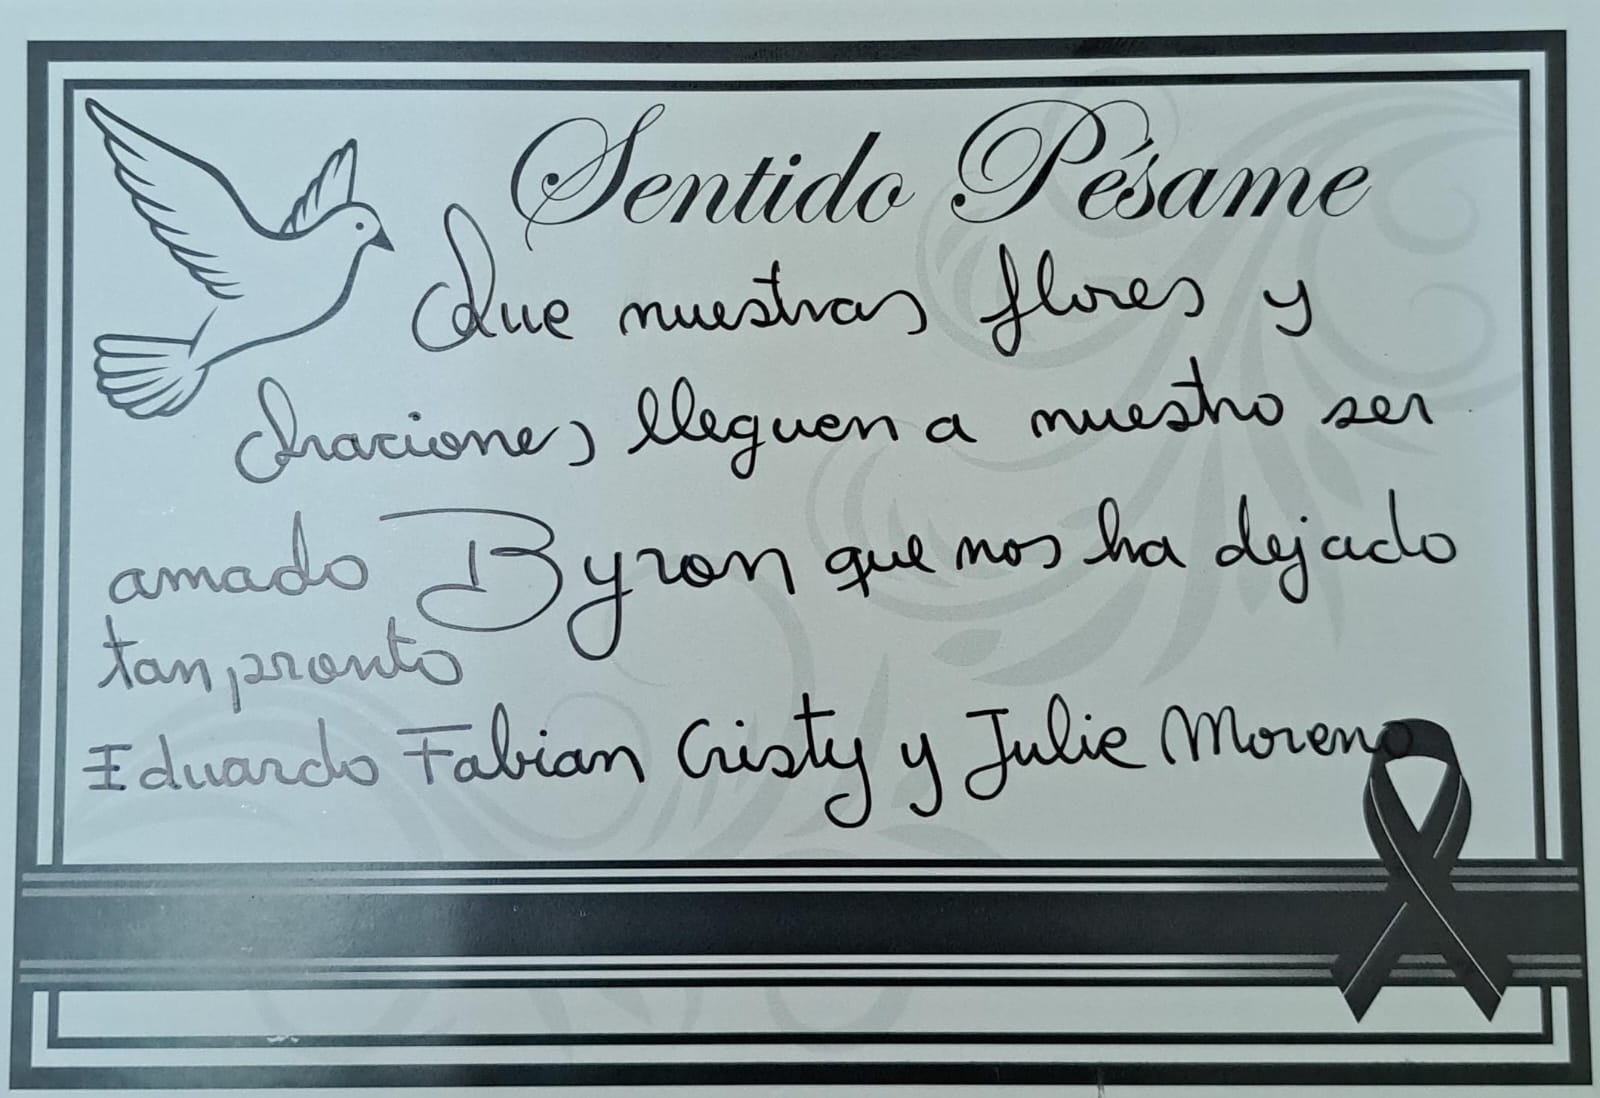 Sentido Pésame
Que nuestras flores y
Oraciones lleguen a nuestro ser
amado Byron que nos ha dejado
tan pronto
Eduardo Fabian Cristy y Julie Moreno